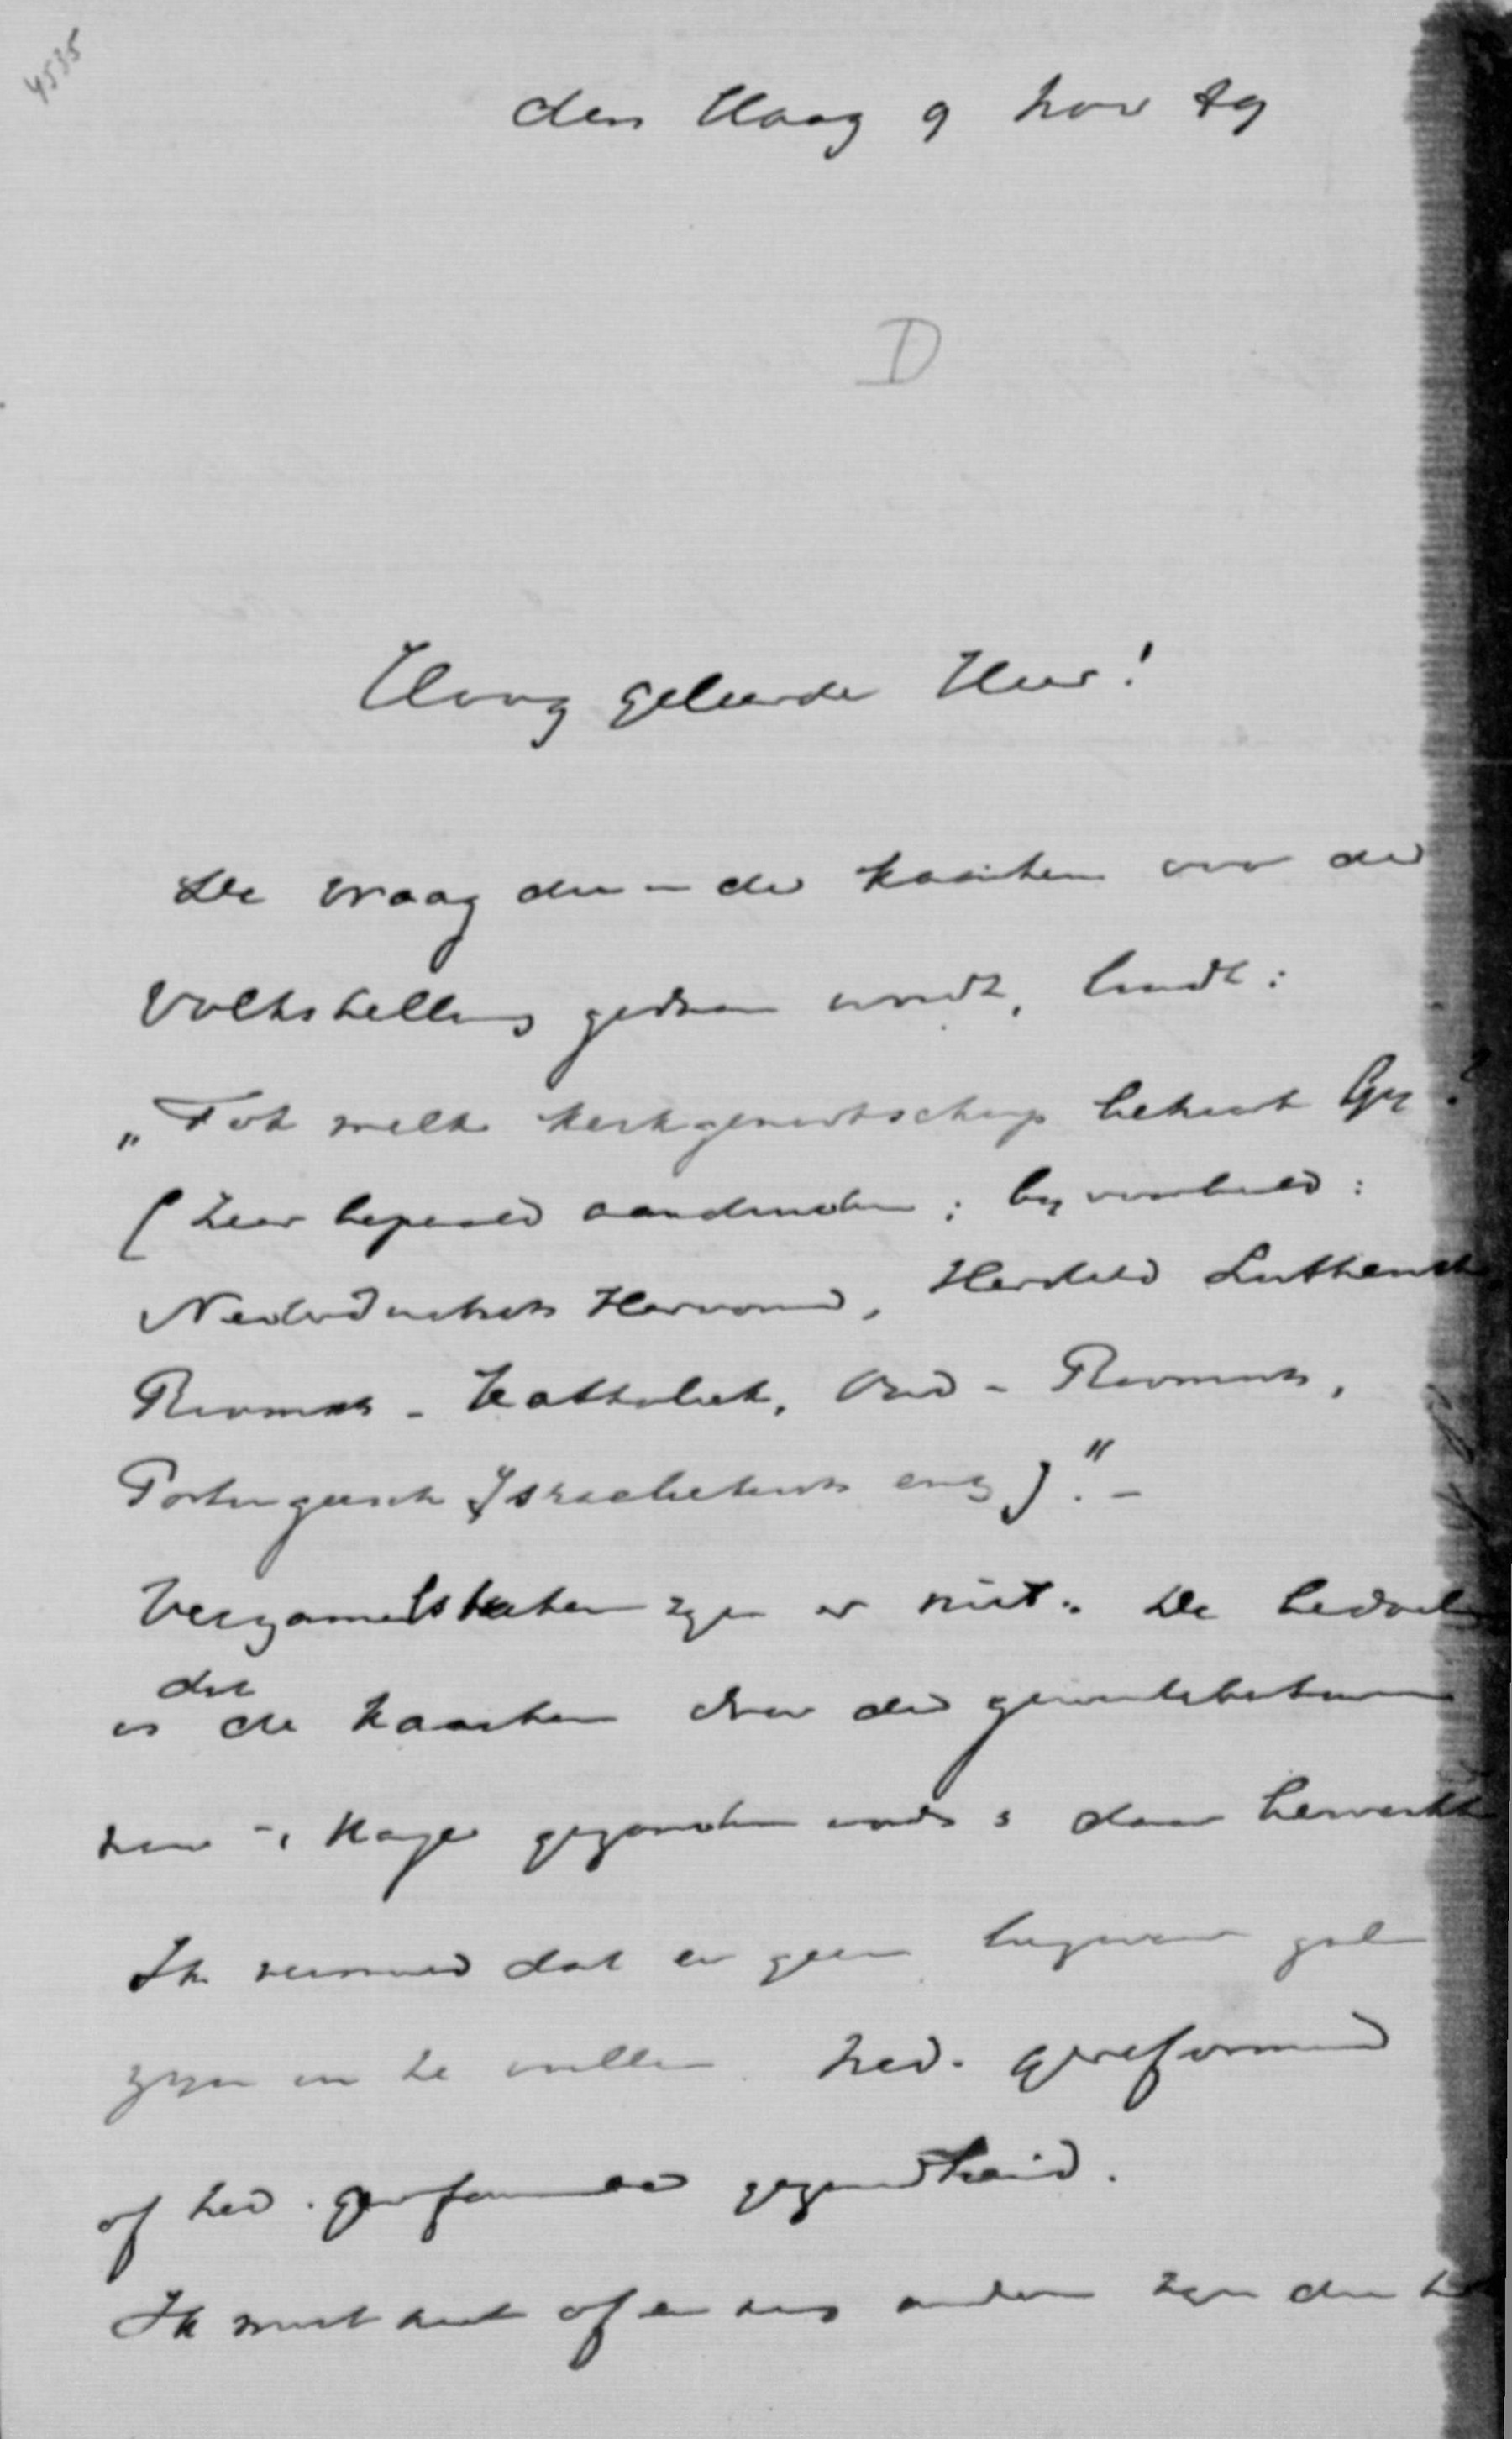 4535
den Haag 9 nov 89
D
Hoog geleerde Heer!
De vraag die in de kaarten voor de
Volkstelling gedaan wordt, luidt:
„Tot welk kerkgenootschap behoort Gij?
(Zeer bepaald aanduiden; bij voorbeeld:
Nederduitsch Hervormd, Hersteld Luthersch
Roomsch - Katholiek, Oud - Roomsch,
Portugeesch Israelietisch enz)." -
Verzamelstaten zijn er niet. De bedoel
is dat de kaarten door de gemeentebesturen
naar Hage gezonden worden daar bewerkt
Ik vermoed dat er geen bezwaar zal
zijn in te vullen ned. gereformeerd
of ned. gereformeerd gezindheid.
Ik weet niet of er nog andere zijn die